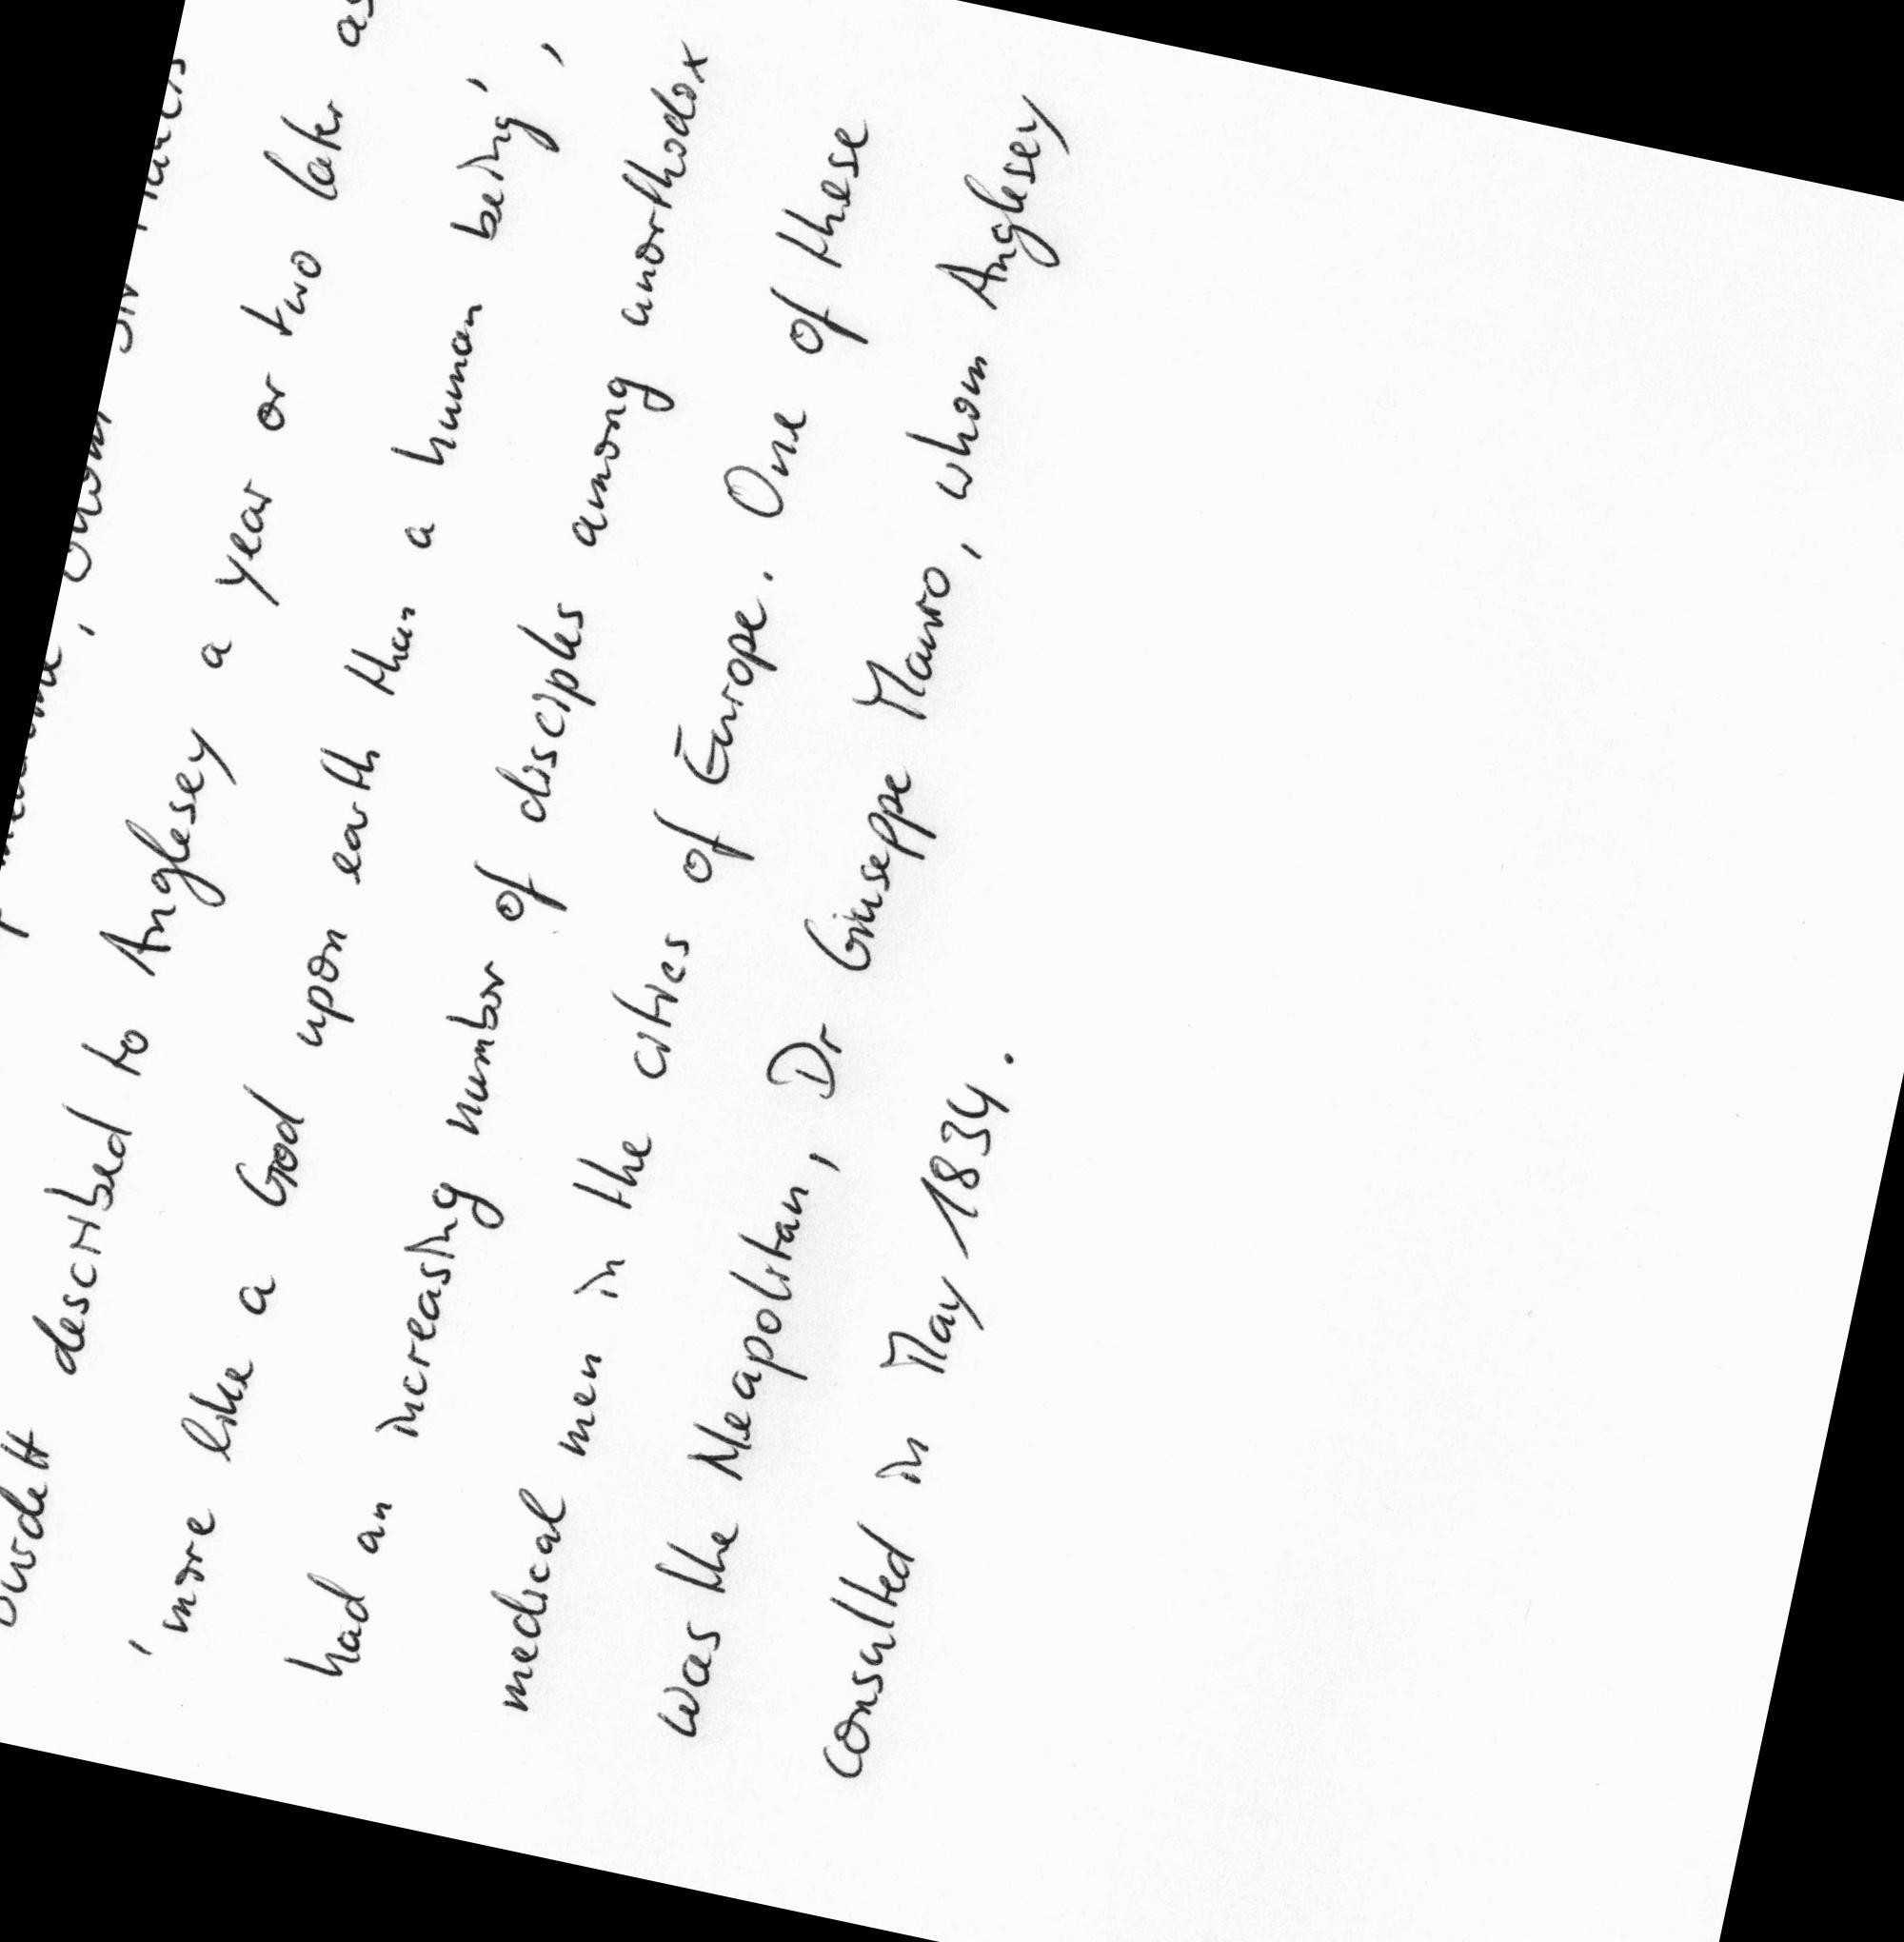 described to Anglesey a year or two later as
'more like a God upon earth than a human being',
had an increasing number of disciples among unorthodox
medical men in the cities of Europe. One of these
was the Neapolitan, Dr Giuseppe Mauro, whom Anglesey
consulted in May 1834.